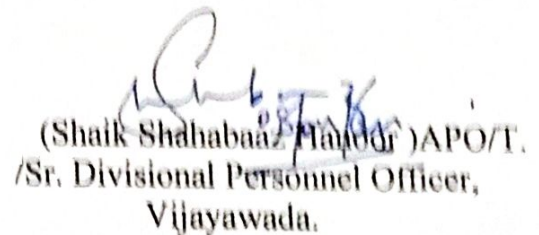 (Shaik Shahabaaz Hanoor )APO/T.
/Sr. Divisional Personnel Officer,
Vijayawada.